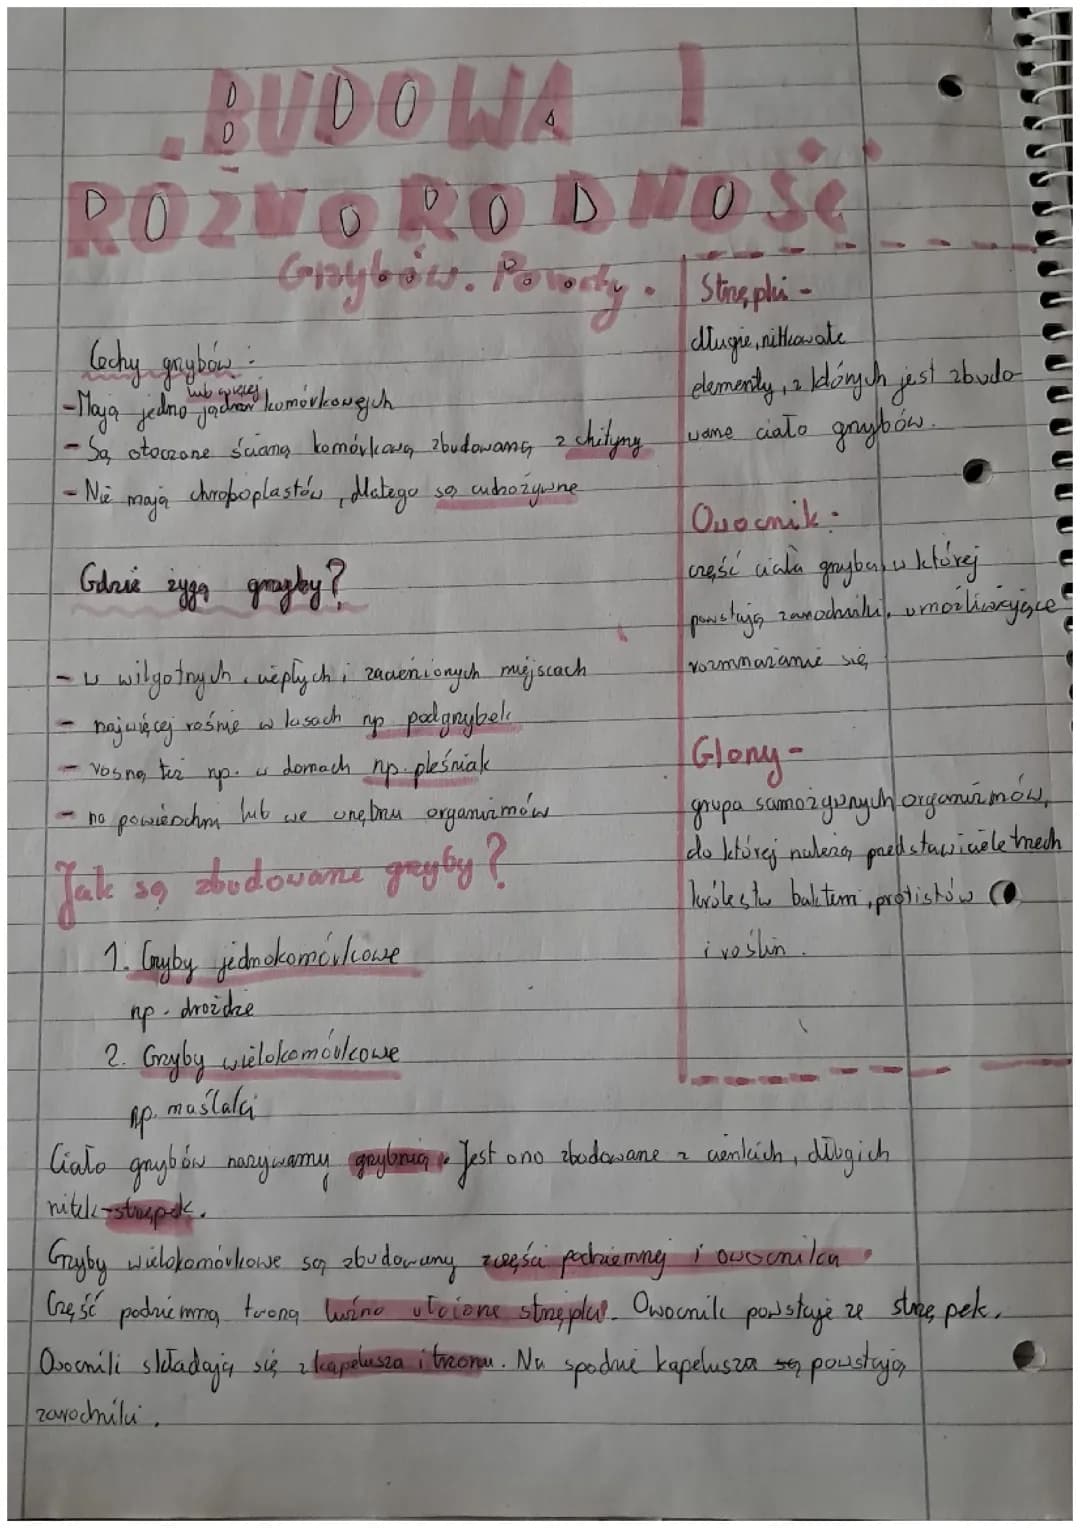 BUDOWA I
RÓŻNORODNOŚĆ
Grzybów. Porosty.
Cechy grzybów:
lub więcej
-Mają jedno jądro komórkowych
- Są otoczone ścianą komórkową zbudowaną z chityny
- Nie mają chroboplastów, dlatego są cudzożywne
Gdzie żyją grzyby?
- w wilgotnych, ciepłych i zacienionych miejscach
- najwięcej rośnie w lasach np. podgrzybek
- rosną też np. w domach np. pleśniak
- na powierzchni lub we wnętrzu organizmów
Jak są zbudowane grzyby?
1. Grzyby jednokomórkowe
np. drożdże
2. Grzyby wielokomórkowe
np. maślaki
Ciało grzybów nazywamy grzybnią. Jest ono zbudowane z cienkich, długich
nitek-strzępek.
Grzyby wielokomórkowe są zbudowany z części podziemnej i owocnika.
Część podziemną tworzą luźno ułożone strzępki. Owocnik powstaje ze strzępek.
Owocniki składają się z kapelusza i trzonu. Na spodnie kapelusza są powstają
zarodniki.
Strzępki -
długie, nitkowate
elementy, z których jest zbudo-
wane ciało grzybów.
Owocnik-
część ciała grzyba, w której
powstają zarodniki, umożliwiające
rozmnażanie się
Glony -
grupa samożywnych organizmów,
do której należą przedstawiciele trzech
królestw bakterii, protistów
i roślin.